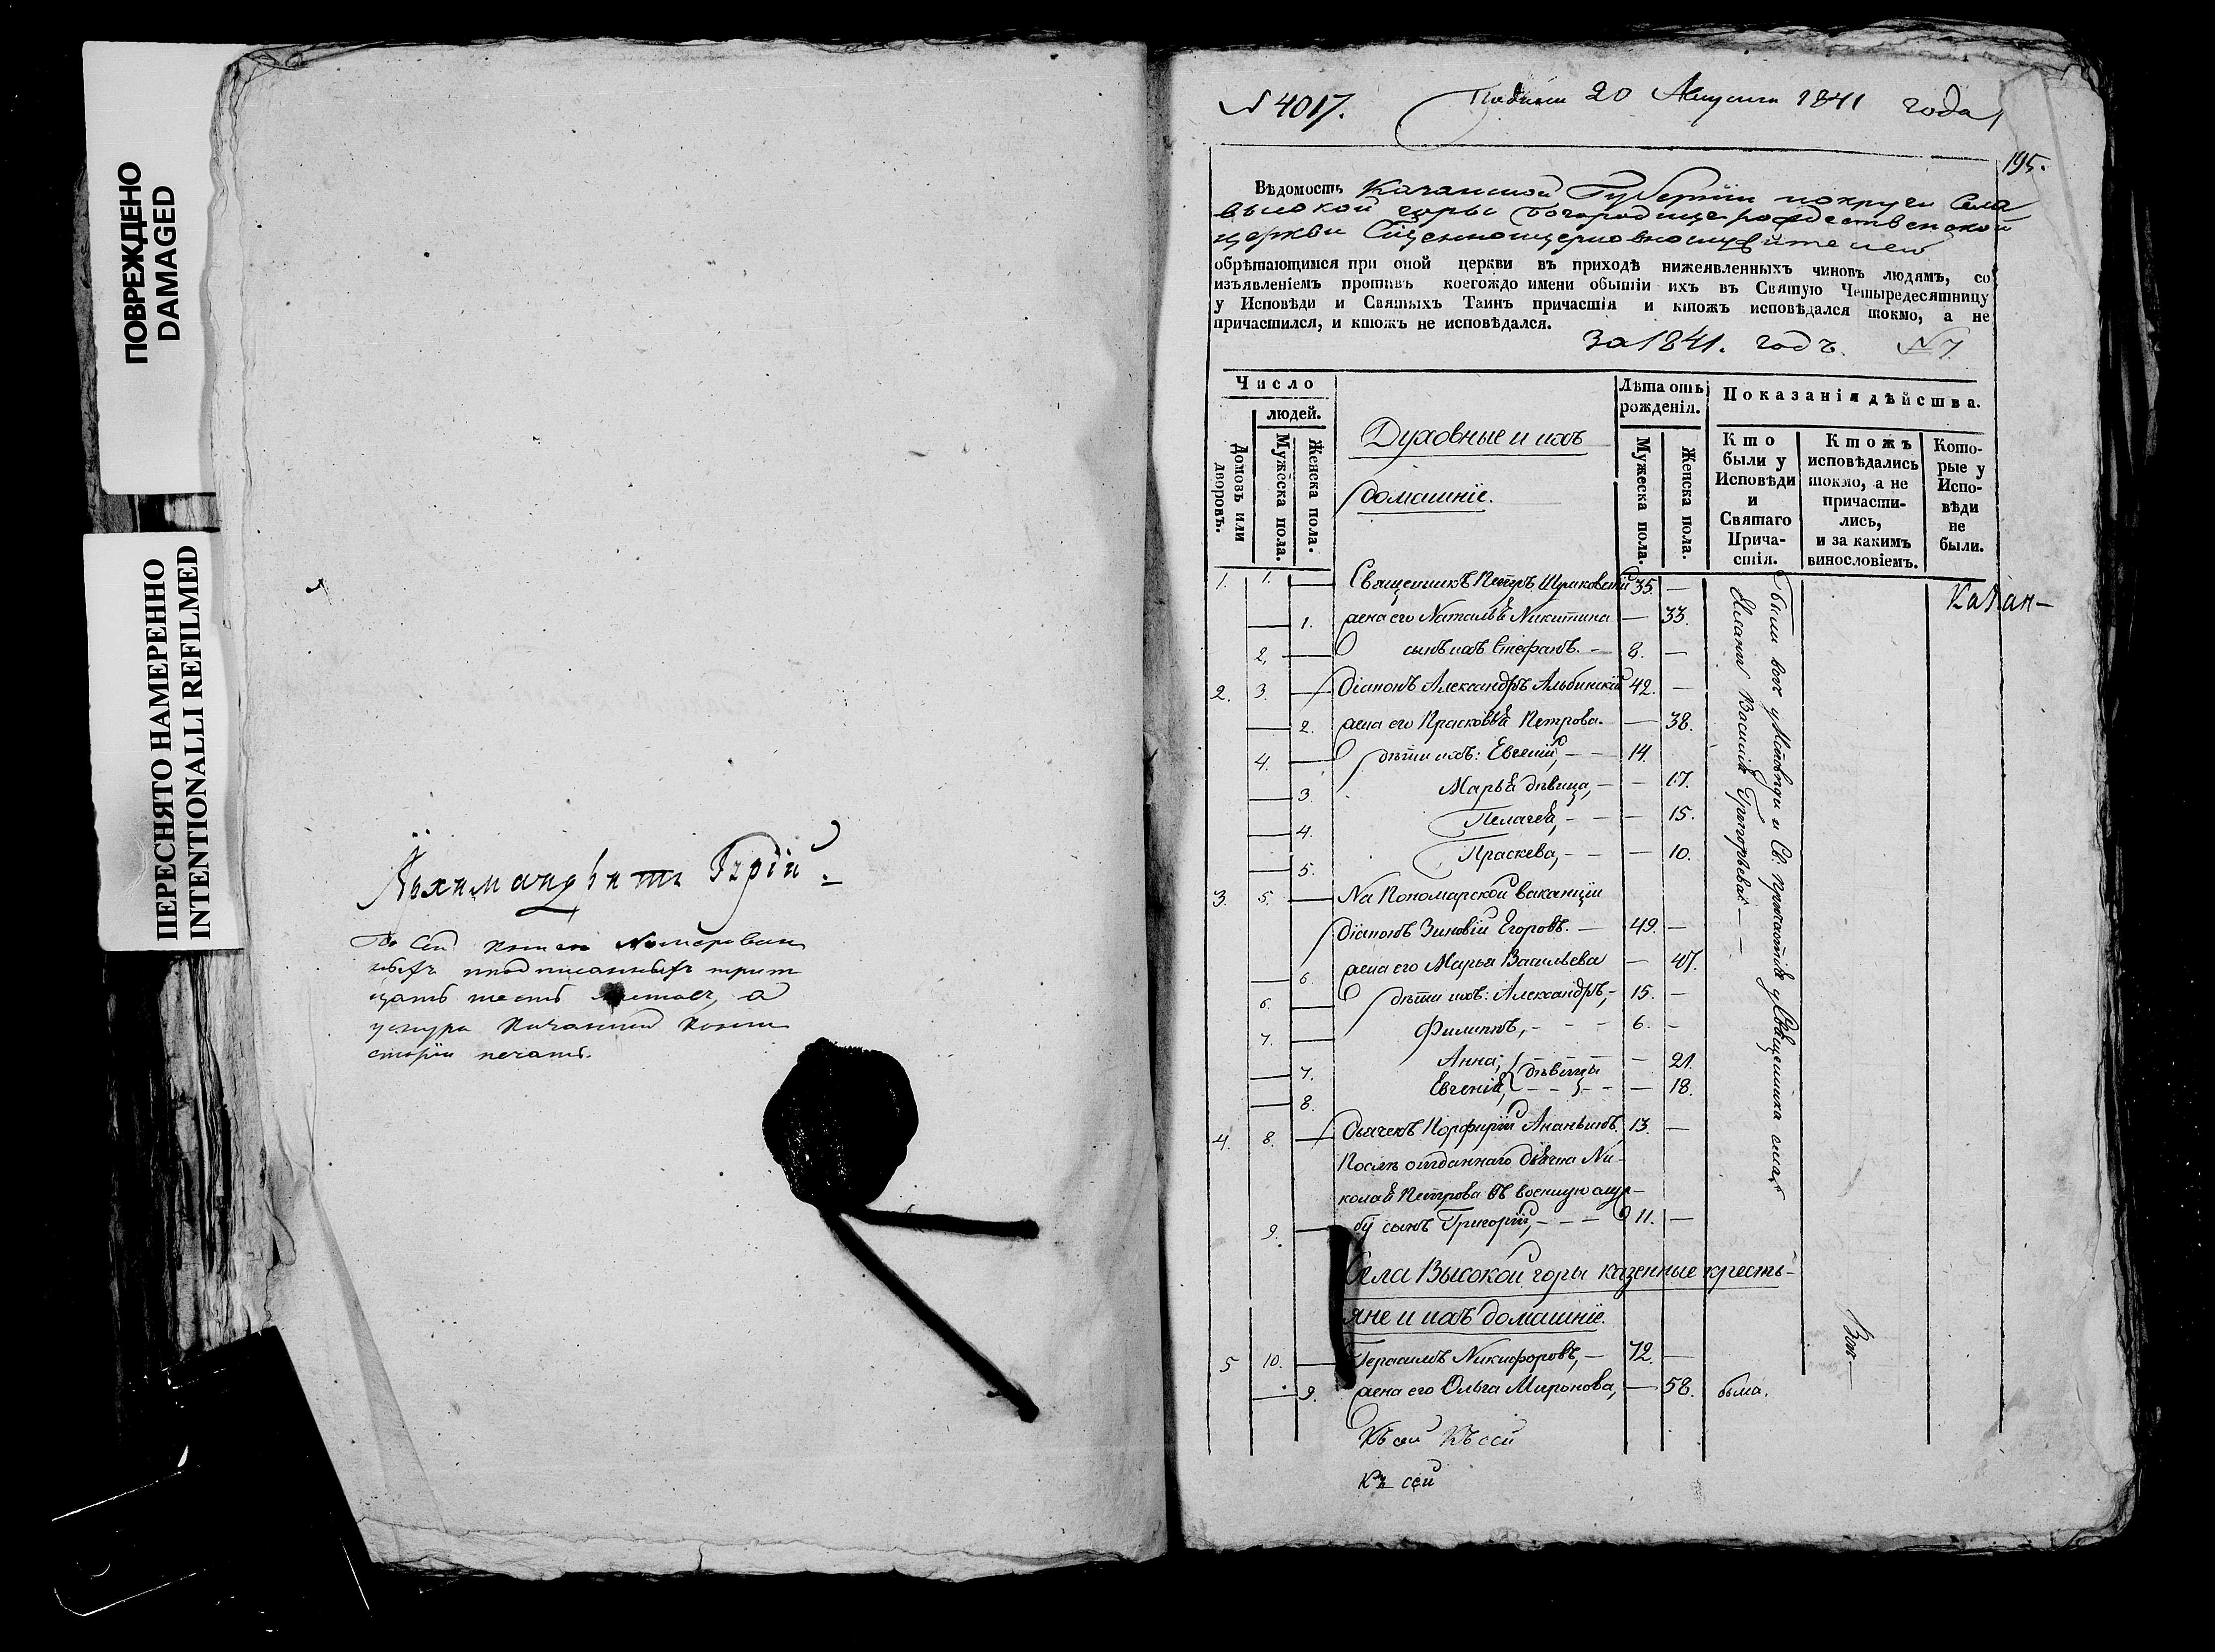 ПОВРЕЖДЕНО
DAMAGED
ПЕРЕСНЯТО НАМЕРЕННО
INTENTIONALLI REFILMED
Архимандритъ Гурій
Въ Сей книгѣ Номерован
ныхъ подписанныхъ трит
цать шесть листовъ, а
у снура Казанской Конси
сторіи печать.
N 4017. Подано 20 Августа 1841 года
195.
Вѣдомость Казанской Губерніи и округи Села
высокой горы Богородицерождественской
церкви Сщенноцерковнослужителей
обрѣтающимся при оной церкви въ приходѣ нижеявленныхъ чиновъ людямъ, со
изъявленіемъ противъ коегождо имени обытіи ихъ въ Святую Четыредесятницу
у Исповѣди и Святыхъ Таинъ причастія и ктожъ исповѣдался токмо, а не
причастился, и ктожъ не исповѣдался.
за 1841. годъ. N 7.
Число
людей.
Домовъ или дворовъ.
Мужеска пола.
Женска пола.
Духовные и ихъ
домашніе.
Лѣта отъ рожденія.
Мужеска пола.
Женска пола.
Показанія дѣйства.
Кто были у Исповѣди и Святаго Причастія.
Ктожъ исповѣдались токмо, а не причастились, и за какимъ винословіемъ.
Которые у Исповѣди не были.
1. 1. — Священникъ Петръ 35. —
— 1. жена его Наталья Никитина — 33.
2, — сынъ ихъ Стефанъ. — 8. —
2. 3. — Діаконъ Александръ Альбинскій 42. —
— 2. жена его Прасковья Петрова. — 38.
4. — дѣти ихъ: Евгеній, — — 14.
— 3. Марья дѣвица, — — 17.
— 4. Пелагея, — — — 15.
— 5. Праскева, — — — 10.
3. 5. — На Пономарской ваканціи
Діаконъ Зиновій Егоровъ. — 49. —
— 6. жена его Марья Васильева — 47.
6. — дѣти ихъ: Александръ, — 15. —
7. — Филиппъ, — — — 6. —
— 7. Анна, } дѣвицы — 21.
— 8. Евгенія, — — — 18.
4. 8. — Дьячекъ Порфирій Ананьинъ 13. —
Послѣ отданнаго дьячка Ни-
колая Петрова въ военную служ-
9. — бу сынъ Григорій, — — — 11. —
Были всѣ у Исповѣди и Св. Причастія у Священника села
Василія Григорьева —
Казан—
Села Высокой горы казенные кресть-
яне и ихъ домашніе.
5 10. — Герасимъ Никифоровъ, — 72. —
— 9. жена его Ольга Миронова, — 58. была.
Къ сей Къ сей
Къ сей